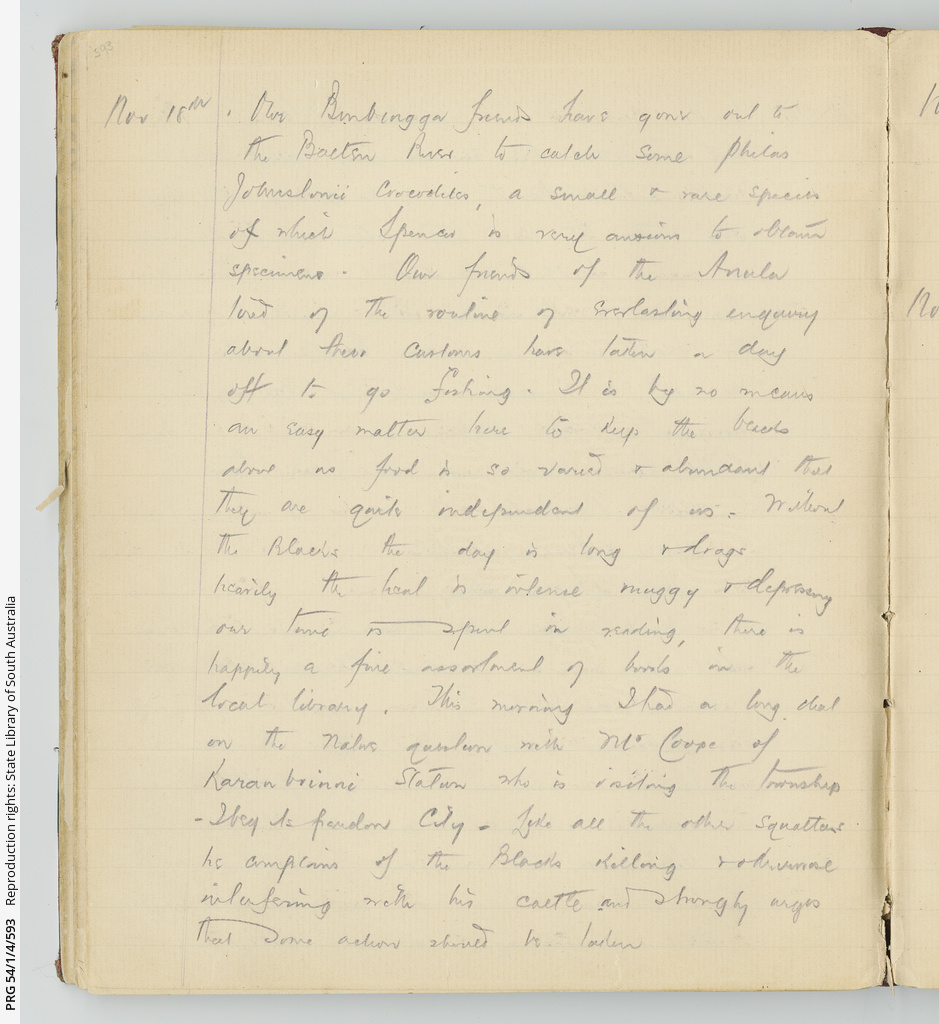 593
Nov 18th. Our Binbingga friends have gone out to
the Batten River to catch some Philas
Johnstonii Crocodiles, a small & rare species
of which Spencer is very anxious to obtain
specimens. Our friends of the Anula
tired of the routine of everlasting enquiry
about their customs have taken a day
off to go fishing. It is by no means
an easy matter here to keep the blacks
above as food is so varied & abundant that
they are quite independent of us. Without
the Blacks the day is long & drags
heavily the heat is intense muggy & depressing
our time is spent in reading, there is
happily a fine assortment of books in the
local library. This morning I had a long chat
on the Native question with Mr Coope of
Karanbrinni Station who is visiting the township
- I beg its pardon City - Like all the other squatters
he complains of the Blacks killing & otherwise
interfering with his cattle and strongly urges
that some action should be taken
No
PRG 54/1/4/593 Reproduction rights: State Library of South Australia